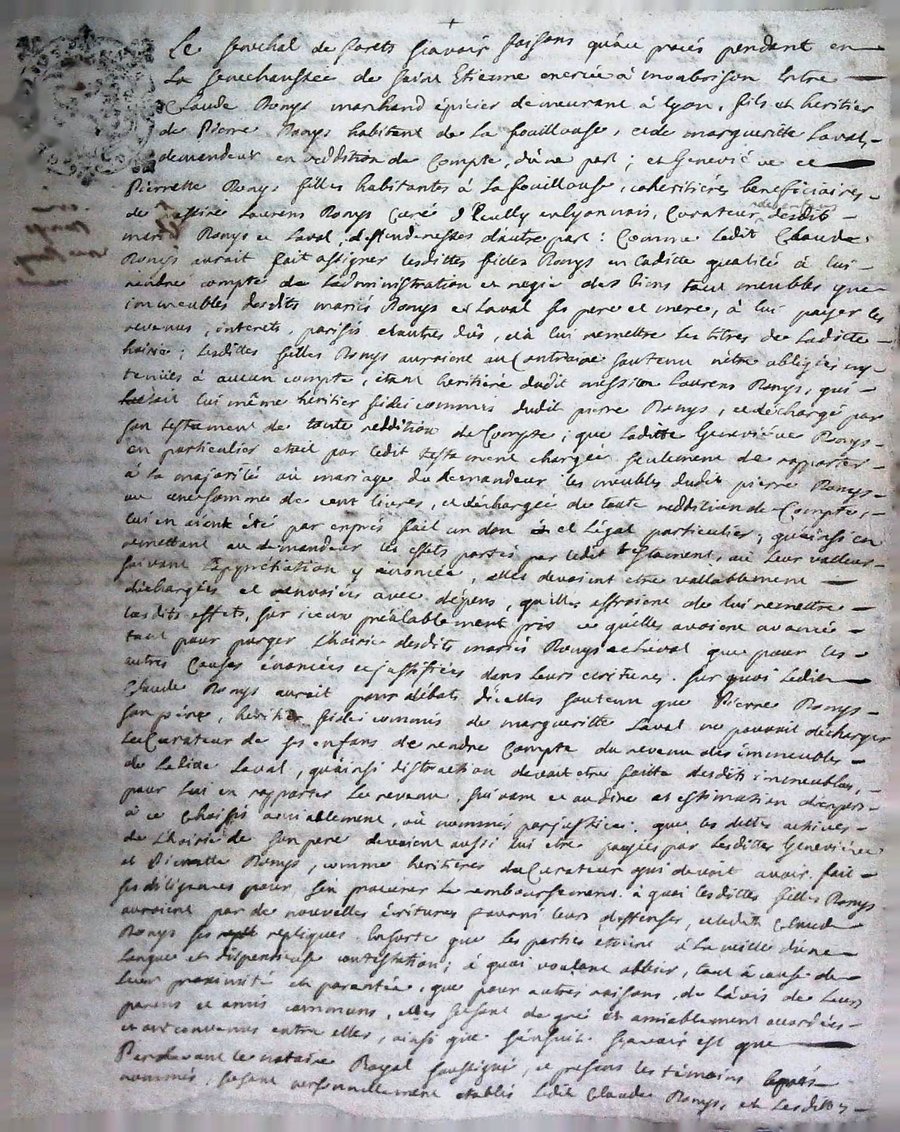 Le Senechal de forets sçavoir faisons quau procés pendant en
La Senechaussée de Saint Etienne enercée à monbrison Entre
Claude Ronys marchand épicier demeurant à lyon, fils et heritier
de Pierre Ronys habitant de La fouillouse, et de margueritte Laval,
demandeur en reddition de Compte, d'une part ; et Geneviéve et
Pierrette Ronys filles habitantes à La fouillouse, coheritiéres beneficiaires
de messire Laurens Ronys Curé d'Ecully en lyonnois, Curateur desdit
mariés Ronys et Laval, deffenderesses d'autre part : Comme Ledit Claude
Ronys aurait fait assigner lesdittes filles Ronys en Laditte qualité à lui
rendre compte de Ladministration et regie des biens tant meubles que
immeubles desdits mariés Ronys et Laval ses pere et mere, à lui payer les
revenus, interets, parisis et autres dûs, et à lui remettre Les titres de Laditte
hoirie ; Lesdittes filles Ronys auroient au Contraire soutenu n'être obligées ny
tenües à aucun compte, étant heritiére dudit messire Laurens Ronys, qui
lui même héritier fideicommis dudit pierre Ronys, et déchargé par
son testament de toute reddition de Compte ; que Laditte Geneviéve Ronys
en particulier etait par ledit testament chargée seulement de rapporter
à la majorité ou mariage du demandeur les meubles dudit pierre Ronys
ou une somme de cent livres, et déchargée de toute reddition de Compte,
lui en aient été par exprés fait un don et Légat particulier, qu'ainsi en
remettant au demandeur les effets portés par ledit testament, ou Leur valleur
suivant L'appretiation y enoncée, elles devoient etre vallablement
déchargées et renvoiées avec dépens, qu'elles offroient de lui remettre
lesdits effets, sur iceux préalablement pris ce quelles avoient avancé
tant pour purger Lhoirie desdits mariés Ronys et Laval que pour les
autres Causes énoncées et justifiées dans Leurs ecritures. Sur quoi Ledit
Claude Ronys aurait pour débats d'icelles soutenu que Pierre Ronys
son pére, héritier fideicommis de margueritte Laval ne pouvoit décharger
Le Curateur de ses enfans de rendre Compte du revenu des immeubles
de Laditte Laval, qu'ainsi distraction devoit etre faitte desdits immeubles,
pour lui en rapporter Le revenu suivant et au dire et estimation d'experts
à ce choisis amiablement, ou nommés par justice : que les dettes actives
de L'hoirie de son pere devoient aussi lui etre payées par Lesdittes Geneviéve
et Pierrette Ronys, comme heritiéres du Curateur qui devoit avoir fait
ses diligences pour s'en procurer Le remboursement. à quoi lesdittes filles Ronys
auroient par de nouvelles écritures fourni leurs deffenses, et ledit Claude
Ronys ses repliques. Ensorte que Les parties etoient à La veille d'une
Longue et dispendieuse contestation ; à quoi voulant obvier, tant à cause de
Leur proximité et parentée, que pour autres raisons, de L'avis de Leurs
parens et amis communs, elles se sont de gré et amiablement accordées
et ont convenus entre elles, ainsi que s'ensuit. Sçavoir est que
Pardevant le notaire Royal soussigné, et presens les témoins aprés
nommés, se sont personnellement etablis Ledit Claude Ronys, et Lesdittes